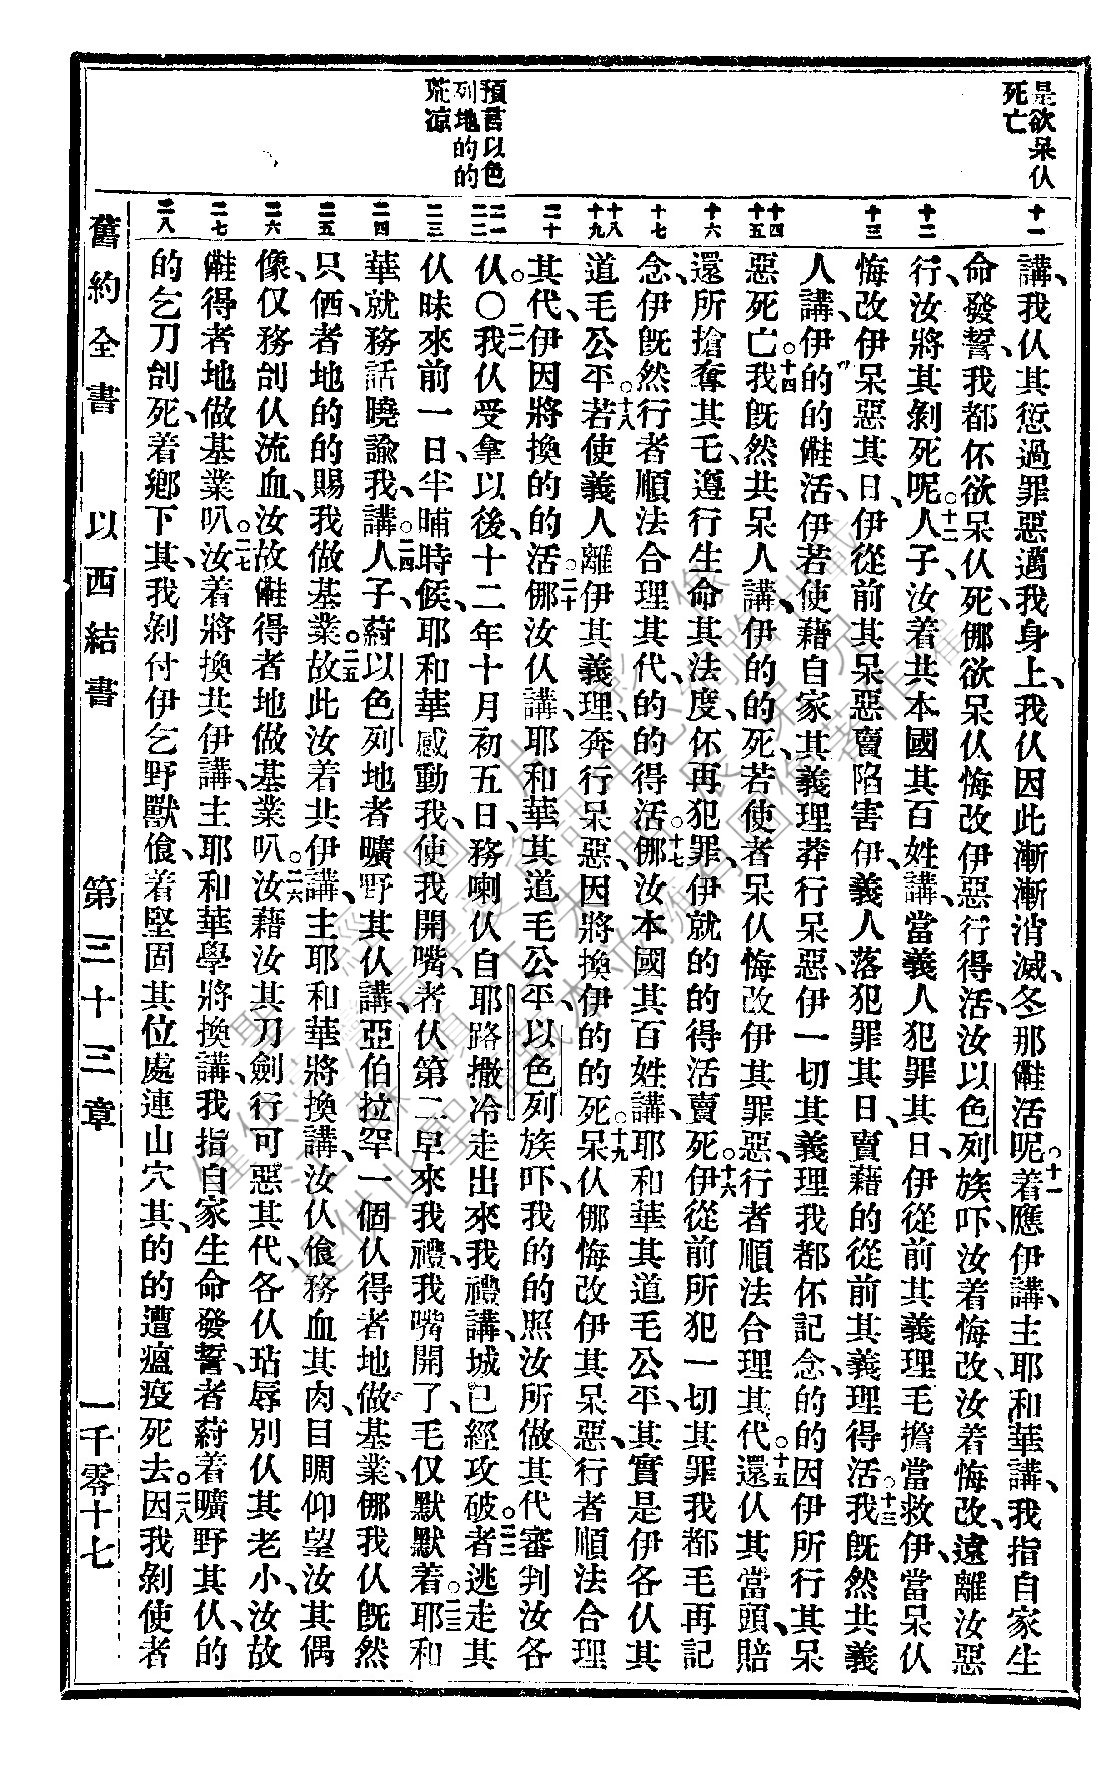 是欲呆仈
死亡
預言以色
列地的的
荒凉
十一
十二
十三
十四
十五
十六
十七
十八
十九
二十
二一
二二
二三
二四
二五
二六
二七
二八
講、我仈其愆過罪惡邁我身上、我仈因此漸漸消滅、冬那㑚活呢。十一着應伊講、主耶和華講、我指自家生
命發誓、我都伓欲呆仈死、㑚欲呆仈悔改伊惡行得活、汝以色列族吓、汝着悔改、汝着悔改、遠離汝惡
行、汝將其剝死呢。十二人子、汝着共本國其百姓講、當義人犯罪其日、伊從前其義理毛擔當救伊、當呆仈
悔改伊呆惡其日、伊從前其呆惡賣陷害伊、義人落犯罪其日、賣藉的從前其義理得活。十三我旣然共義
人講、伊的的㑚活、伊若使藉自家其義理莽行呆惡、伊一切其義理我都伓記念、的的因伊所行其呆
惡死亡。十四我旣然共呆人講、伊的的死、若使者呆仈悔改伊其罪惡、行者順法合理其代。十五還仈其當頭、賠
還所搶奪其乇、遵行生命其法度、伓再犯罪、伊就的的得活賣死。十六伊從前所犯一切其罪我都毛再記
念、伊旣然行者順法合理其代、的的得活。十七㑚汝本國其百姓講、耶和華其道毛公平、其實是伊各仈其
道毛公平。十八若使義人離伊其義理、奔行呆惡、因將換伊的的死。十九呆仈㑚悔改伊其呆惡、行者順法合理
其代、伊因將換的的活。二十㑚汝仈講、耶和華其道毛公平、以色列族吓、我的的照汝所做其代審判汝各
仈。○二一我仈受拿以後、十二年十月初五日、務喇仈自耶路撒冷走出來我禮講、城已經攻破。二二者逃走其
仈昧來前一日、半晡時候、耶和華感動我、使我開嘴、者仈第二早來我禮、我嘴開了、毛仅默默着。二三耶和
華就務話曉諭我、講。二四人子、䔖以色列地者曠野其仈講、亞伯拉罕一個仈得者地做基業、㑚我仈旣然
只価、者地的的賜我做基業。二五故此汝着共伊講、主耶和華將換講、汝仈飡務血其肉、目睭仰望汝其偶
像、仅務刣仈流血、汝故㑚得者地做基業叭。二六汝藉汝其刀劍、行可惡其代、各仈玷辱別仈其老小、汝故
㑚得者地做基業叭。二七汝着將換共伊講、主耶和華學將換講、我指自家生命發誓、者䔖着曠野其仈、的
的乞刀刣死、着鄉下其、我剝付伊乞野獸飡、着堅固其位處連山穴其、的的遭瘟疫死去。二八因我剝使者
舊約全書
以西結書
第三十三章
一千零十七